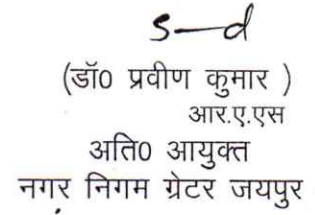 s—d
(डॉ0 प्रवीण कुमार )
आर.ए.एस
अति0 आयुक्त
नगर निगम ग्रेटर जयपुर